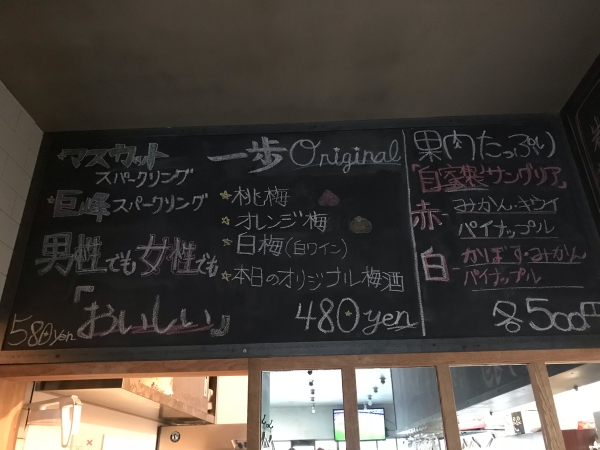 マスカット
スパークリング
巨峰スパークリング
男性でも女性でも
『おいしい』
580yen
一歩Original
桃梅
オレンジ梅
白梅(白ワイン)
本日のオリジナル梅酒
480yen
果肉たっぷり
「自家製」サングリア
赤-みかん・キウイ
パイナップル
白-かぼす・みかん
パイナップル
各500円